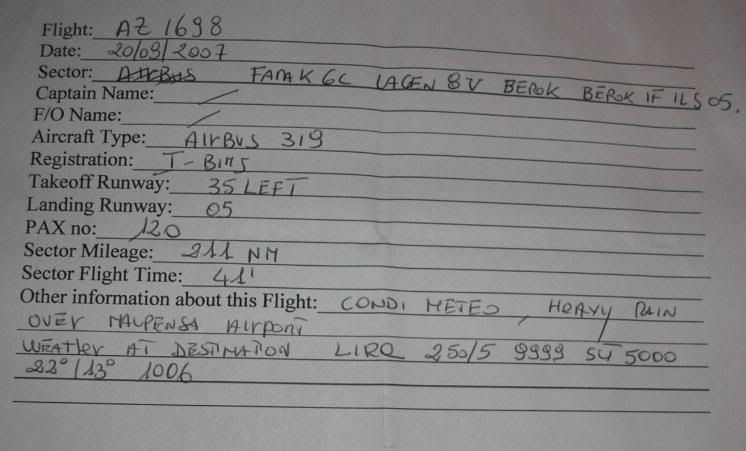 Flight: AZ 1698
Date: 20/09/2007
Sector: AirBus FARAK 6C LAGEN 8V BEROK BEROK IF ILS 05.
Captain Name: /
F/O Name: /
Aircraft Type: AIrBUS 319
Registration: I-BIMJ
Takeoff Runway: 35 LEFT
Landing Runway: 05
PAX no: 120
Sector Mileage: 211 NM
Sector Flight Time: 41'
Other information about this Flight: CONDI METEO, HEAVY RAIN
OVER MALPENSA AIrport
WEATher AT DESTINATION LIRQ 250/5 9999 SCT 5000
22°/13° 1006